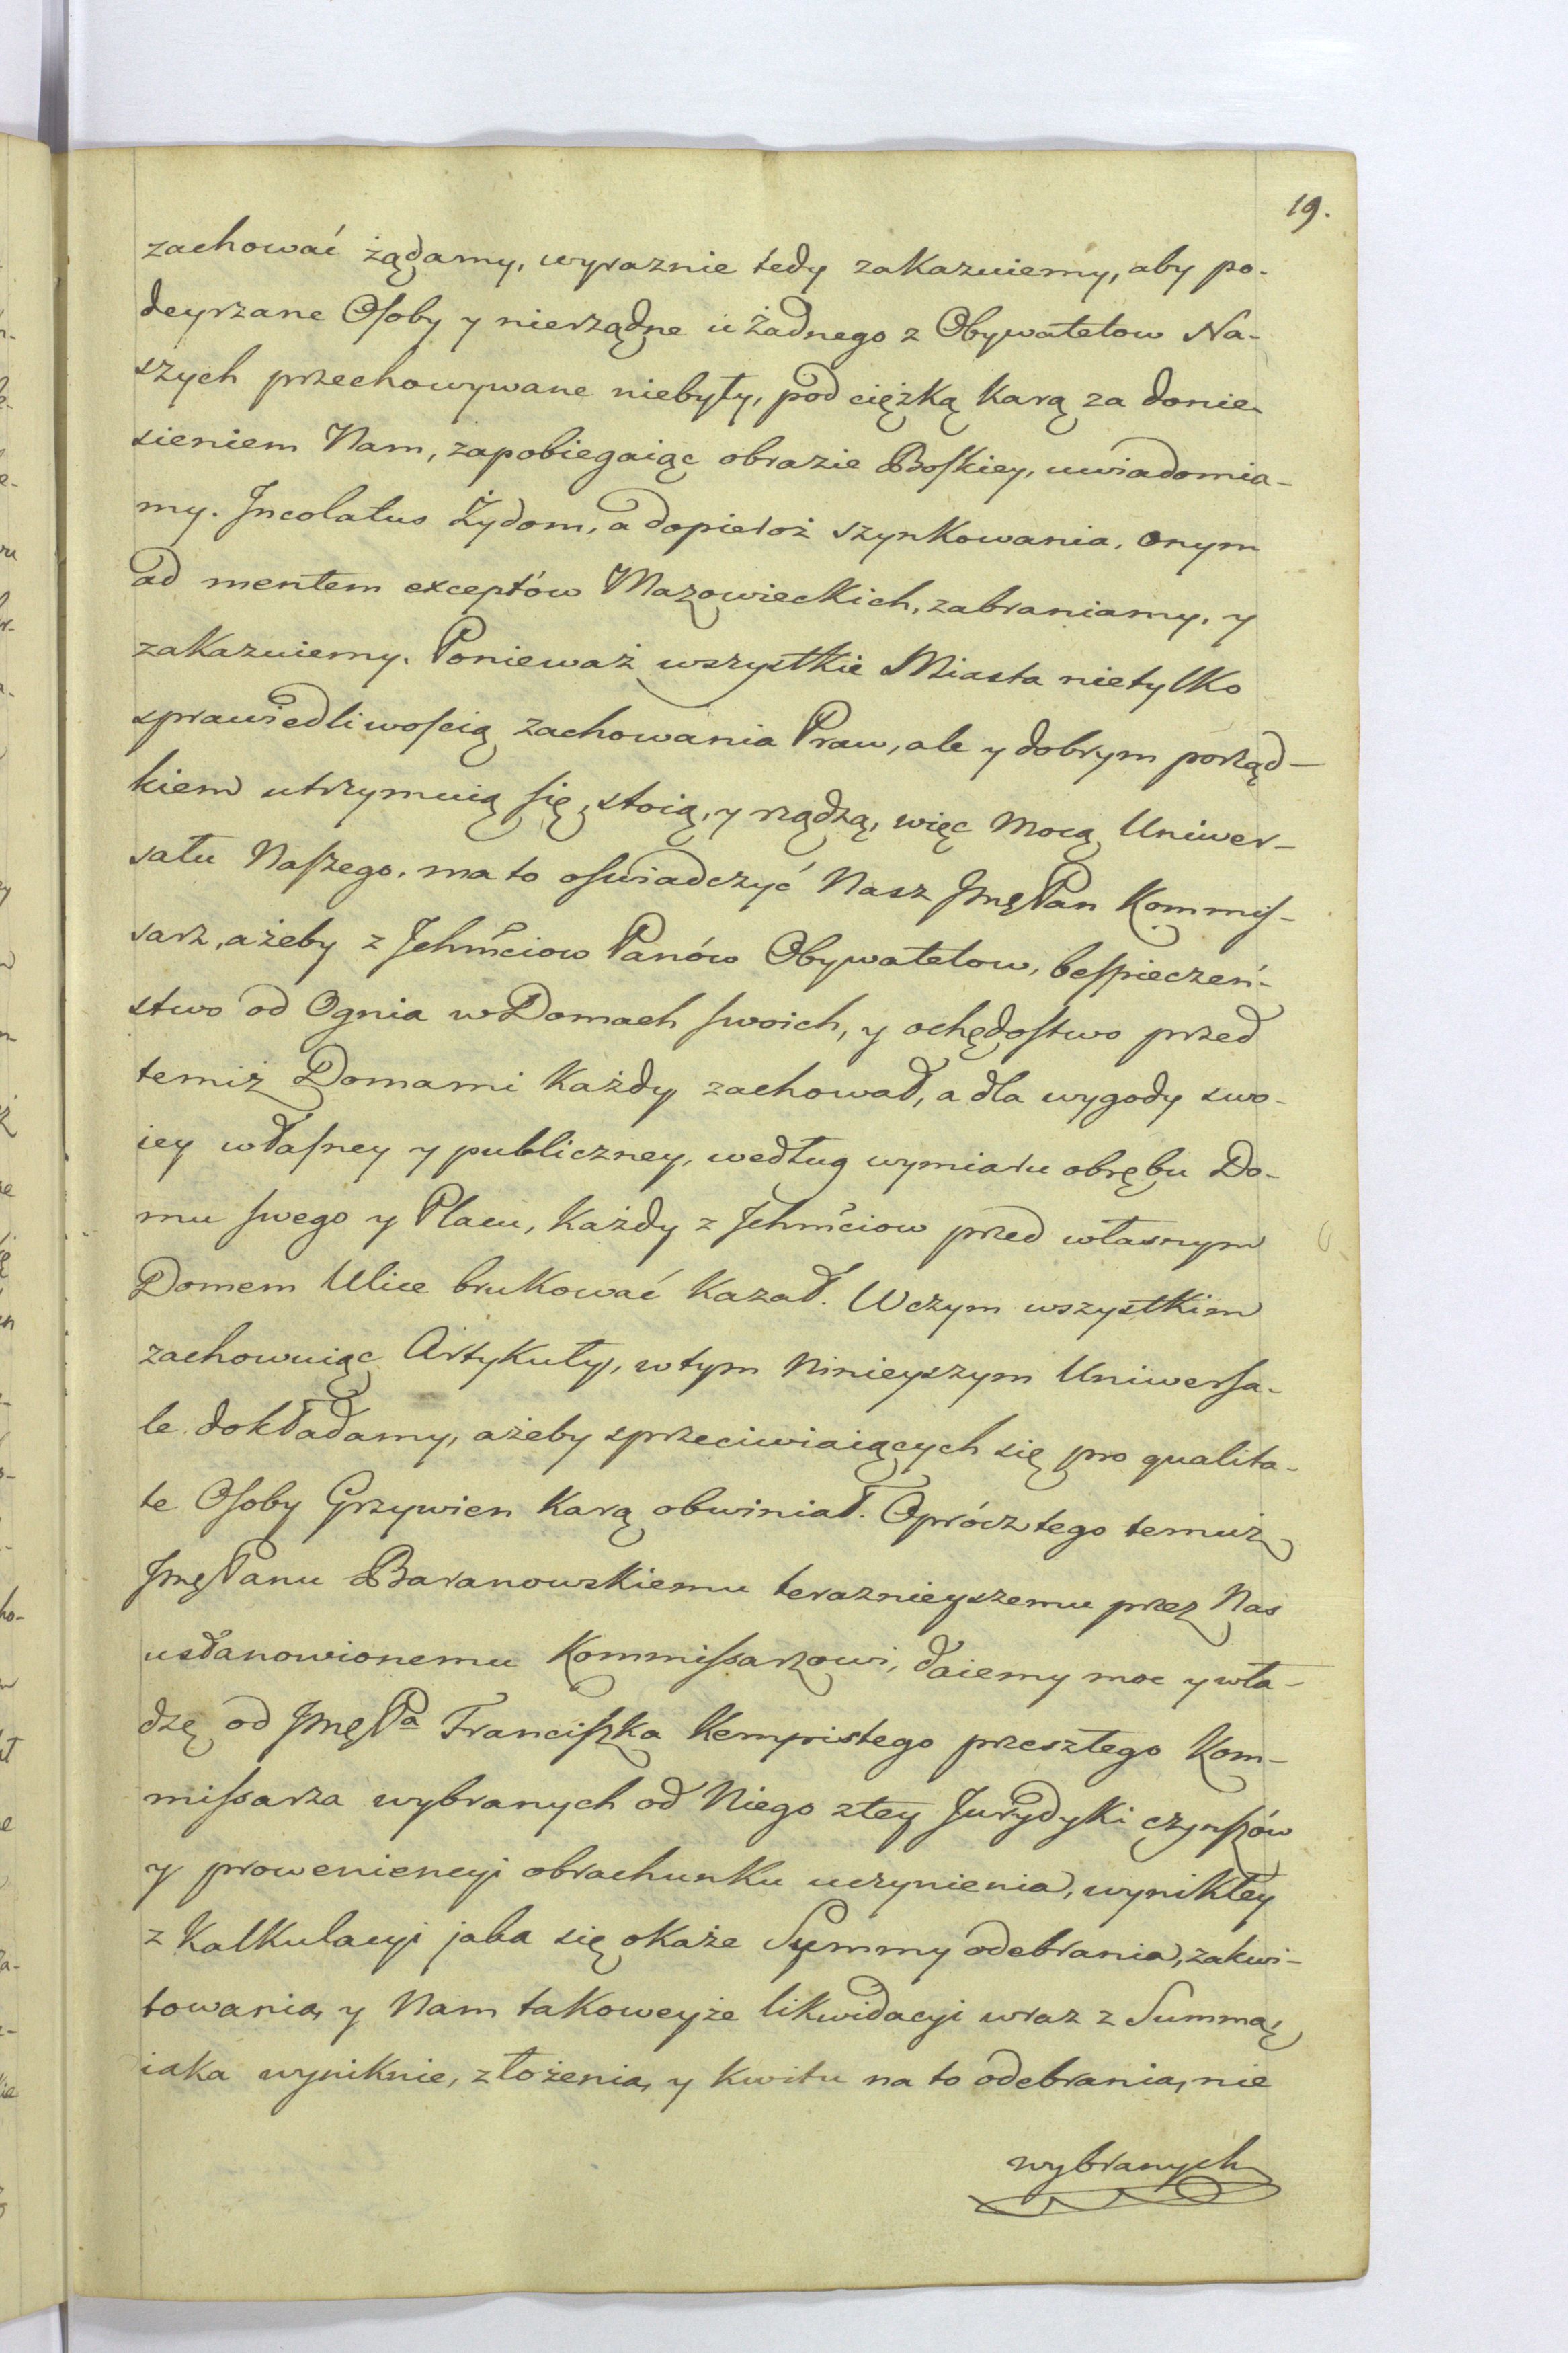 19.
zachować żądamy, wyraznie tedy zakazuiemy, aby po-
deyrzane Osoby y nierządne u żadnego z Obywatelow Na-
szych przechowywane niebyły, pod ciężką karą za donie-
sieniem Nam, zapobiegaiąc obrazie Boskiey, uwiadomia-
my. Incolatus Żydom, a dopieroż szynkowania, onym
ad mentem exceptów Mazowieckich, zabraniamy, y
zakazuiemy. Ponieważ wszystkie Miasta nietylko
sprawiedliwością zachowania Praw, ale y dobrym porząd-
kiem utrzymuią się, stoią, y rządzą, więc mocą Uniwer-
sału Naszego, ma to oswiadczyć Nasz Jmę Pan Kommis-
sarz, ażeby z Jchmciow Panów Obywatelow, bespieczeń-
stwo od Ognia w Domach swoich, y ochędostwo przed
temiż Domami każdy zachował, a dla wygody swo-
iey własney y publiczney, według wymiaru obrębu Do-
mu swego y Placu, każdy z Jchmciow przed własnym
Domem Ulice brukować kazał. W czym wszystkim
zachowuiąc Artykuły, w tym ninieyszym Uniwersa-
le dokładamy, ażeby sprzeciwiaiących się pro qualita-
te Osoby Grzywien karą obwiniał. Oprócz tego temuż
Jmę Panu Baranowskiemu teraznieyszemu przez Nas
ustanowionemu Kommissarzowi, daiemy moc y wła-
dzę od Jmę Pa Franciszka Kempistego przeszłego Kom-
missarza wybranych od Niego z tey Jurydyki czynszów
y proweniencyi obrachunku uczynienia, wynikłey
z Kalkulacyi jaka się okaże Summy odebrania, zakwi-
towania, y Nam takoweyże likwidacyi wraz z Summą,
iaka wyniknie, złożenia, y kwitu na to odebrania, nie
wybranych